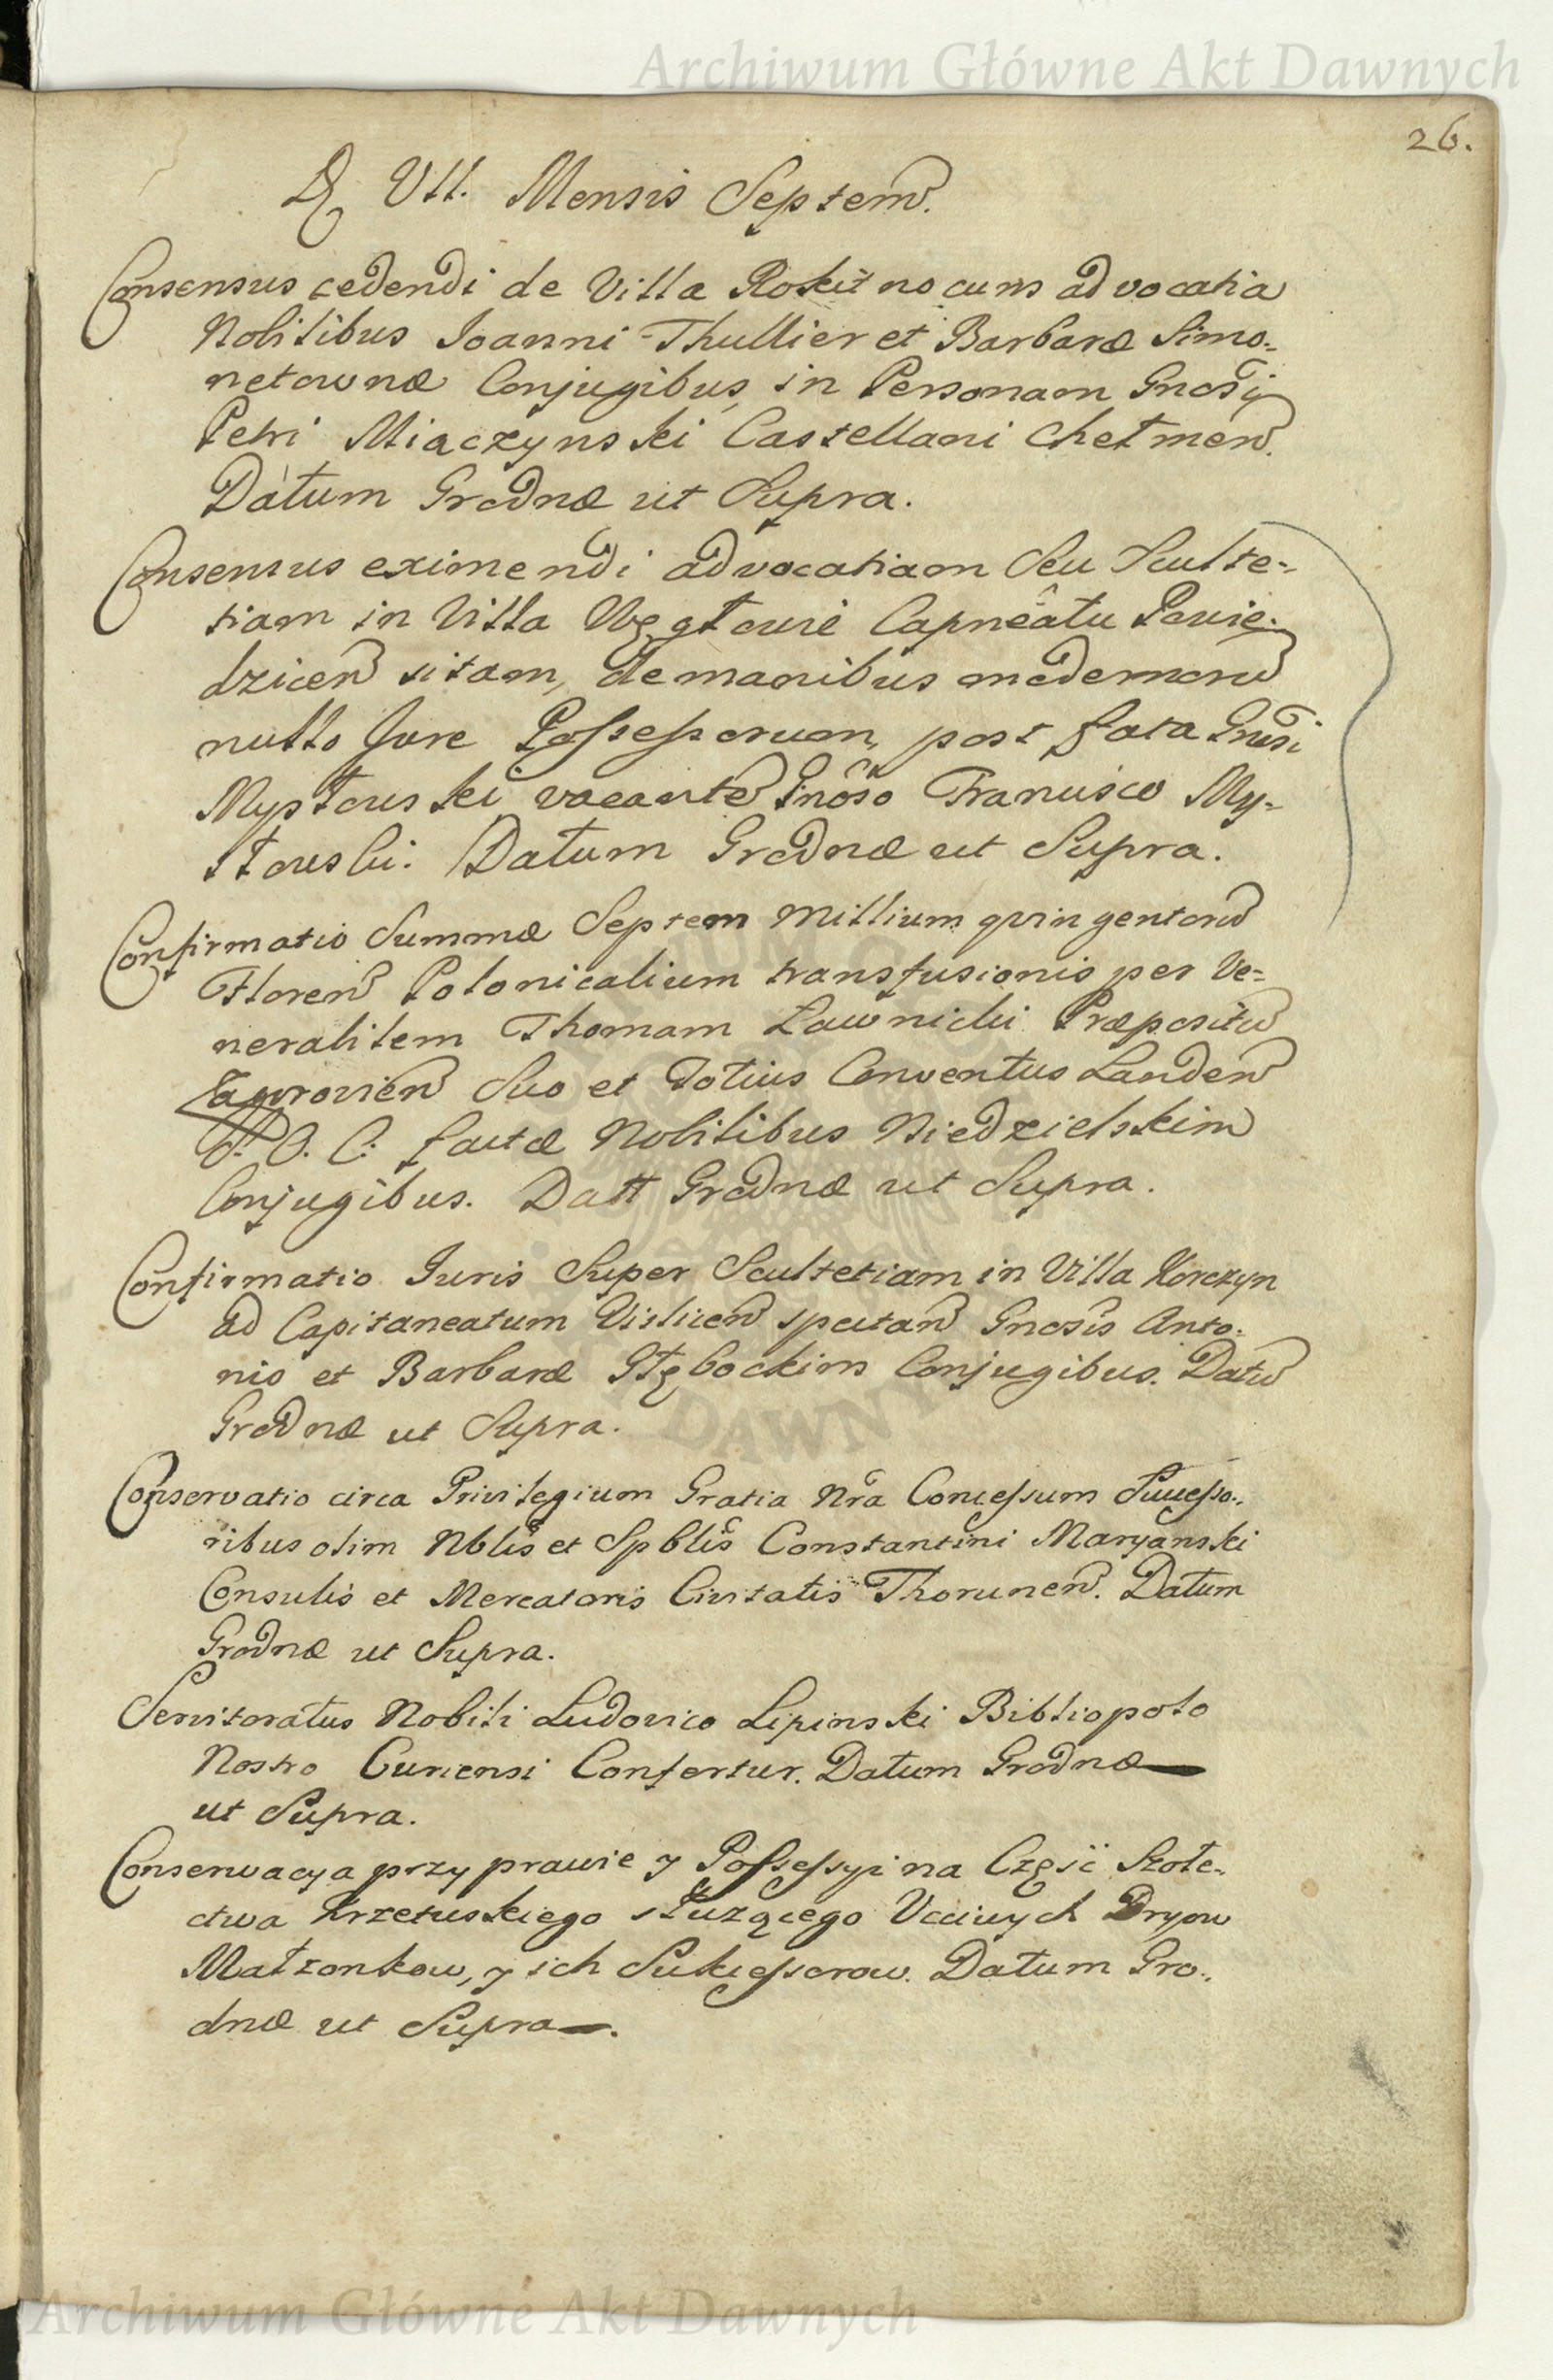 Archiwum Główne Akt Dawnych
26.
D. VII. Mensis Septem.
Consensus cedendi de Villa Rokitno cum advocatia
Nobilibus Joanni Thullier et Barbaræ Simo-
netownæ Conjugibus, in Personam Gnosi
Petri Miączynski Castellani Chełmen.
Datum Grodnæ ut Supra.
Consensus eximendi advocatiam Seu Sculte-
tiam in Villa Capneatu Powie-
dzicen sitam, de manibus modernoru
nullo Jure Possessorum, post fata Gnosi
Mysłowski vacante Gnoso Francisco My-
słowski. Datum Grodnæ ut Supra.
Confirmatio Summæ Septem Millium quingentoru
Floren Polonicalium transfusionis per Ve-
nerabilem Thomam Ławnicki Præpositu
Zagorovien Suo et Totius Conventus Landen
S. O. C. factæ Nobilibus Niedzielskim
Conjugibus. Datt Grodnæ ut Supra.
Confirmatio Juris Super Scultetiam in Villa Korczyn
ad Capitaneatum Vislicen spectan Gnosis Anto-
nio et Barbaræ Stębockim Conjugibus. Datu
Grodnæ ut Supra.
Conservatio circa Privilegium Gratia Nra Concessum Successo-
ribus olim Nblis et Spblis Constantini Maryanski
Consulis et Mercatoris Civitatis Thorunen. Datum
Grodnæ ut Supra.
Servitoratus Nobili Ludovico Lipinski Bibliopolo
Nostro Curiensi Confertur. Datum Grodnæ
ut Supra.
Conserwacya przy prawie y Possessyi na Część Szołe-
ctwa Krzetuskiego służącego Uczciwych Dryow
Małzonkow, y ich Sukcessorow. Datum Gro-
dnæ ut Supra.
Archiwum Główne Akt Dawnych